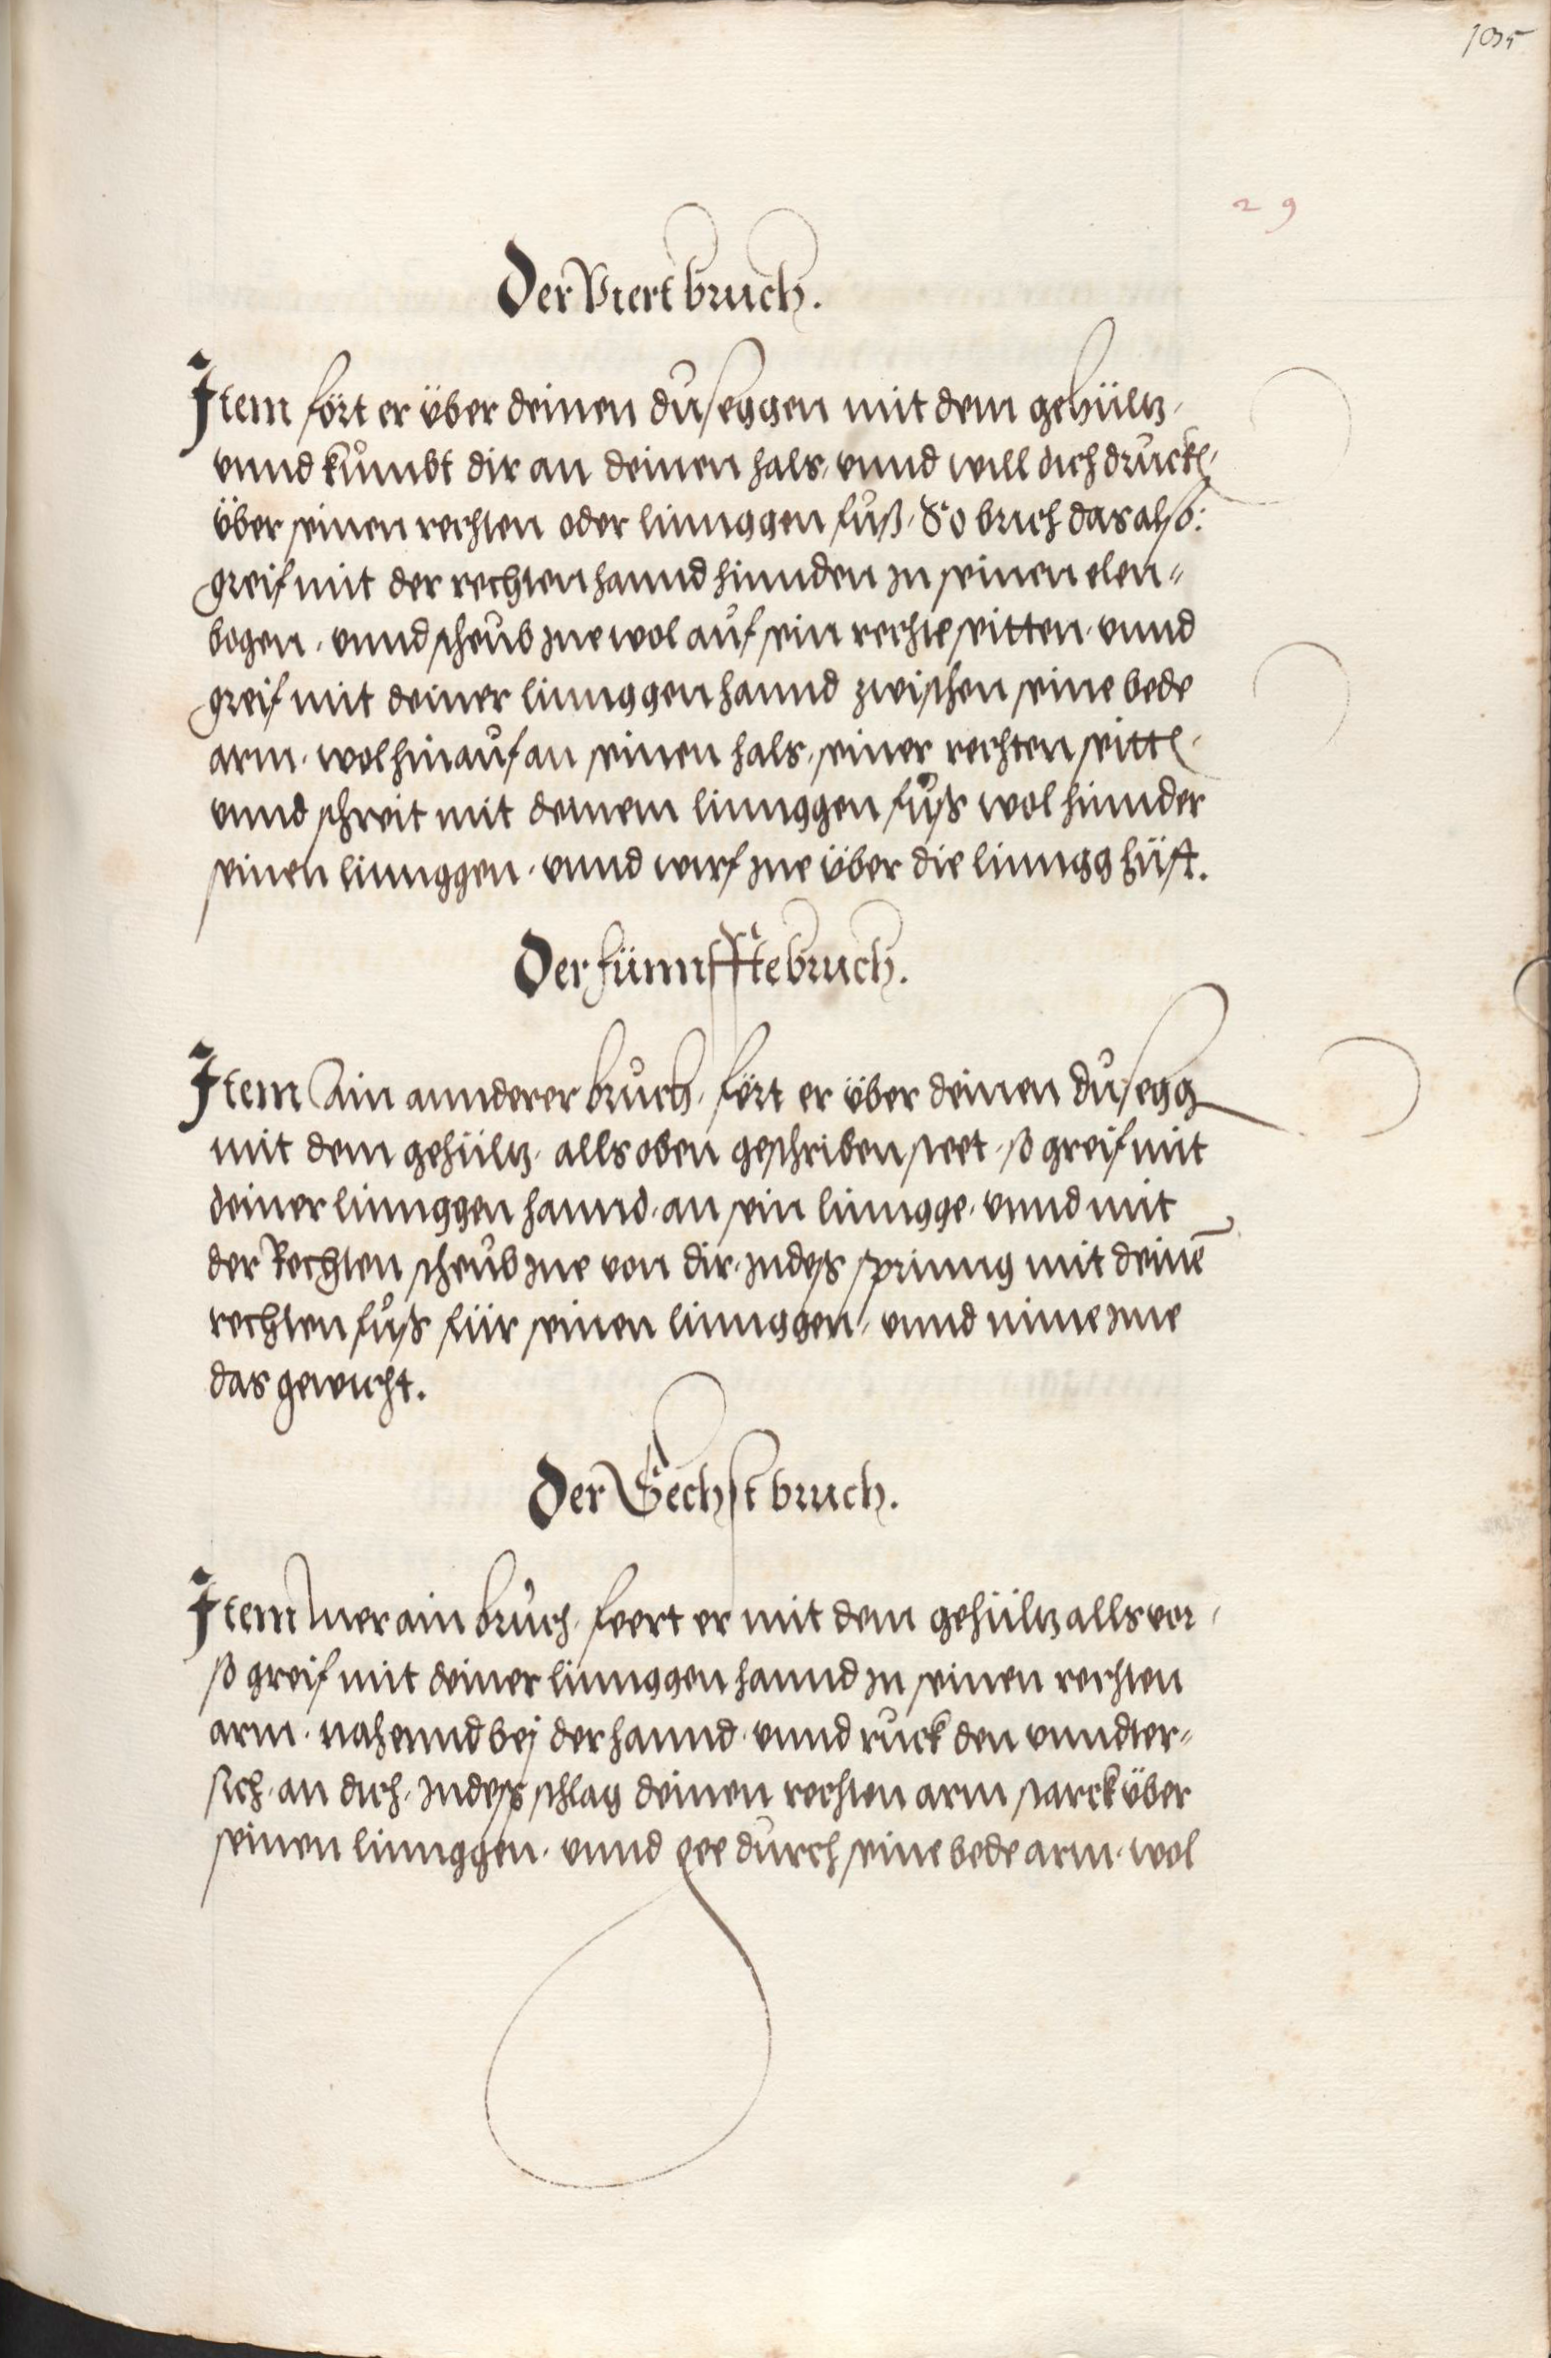 105
29
Der Viert bruch.
Item fört er über deinen duseggen mit dem gehültz,
vnnd kůmbt dir an deinen hals, vnnd will dich druckn,
über seinen rechten oder linnggen fuß, So brich das also:
greif mit der rechten hannd hinnden zu seinen elen=
bogen, vnnd scheub ine wol auf sein rechte seitten, vnnd
greif mit deiner linnggen hannd zwischen seine bede
arm, wol hinauf an seinen hals, seiner rechten seittn,
vnnd schreit mit deinem linnggen fůß wol hinnder
seinen linnggen, vnnd wirf ine über die linngg hüft.
Der fünnffte bruch.
Item Ain annderer bruch, fört er über deinen dusegg
mit dem gehültz, alls oben geschriben steet, so greif mit
deiner linnggen hannd, an sein lingge, vnnd mit
der Rechten scheub ine von dir, indess spring mit deinē
rechten fůß für seinen linnggen, vnnd nime ime
das gewicht.
Der Sechst bruch.
Item Mer ain bruch, feert er mit dem gehültz alls vor,
so greif mit deiner linnggen hannd zu seinen rechten
arm, nahennd bej der hannd, vnnd ruck den vnndter=
sich, an dich, indess schlag deinen rechten arm starck über
seinen linnggen, vnnd gee durch seine bede arm, wol